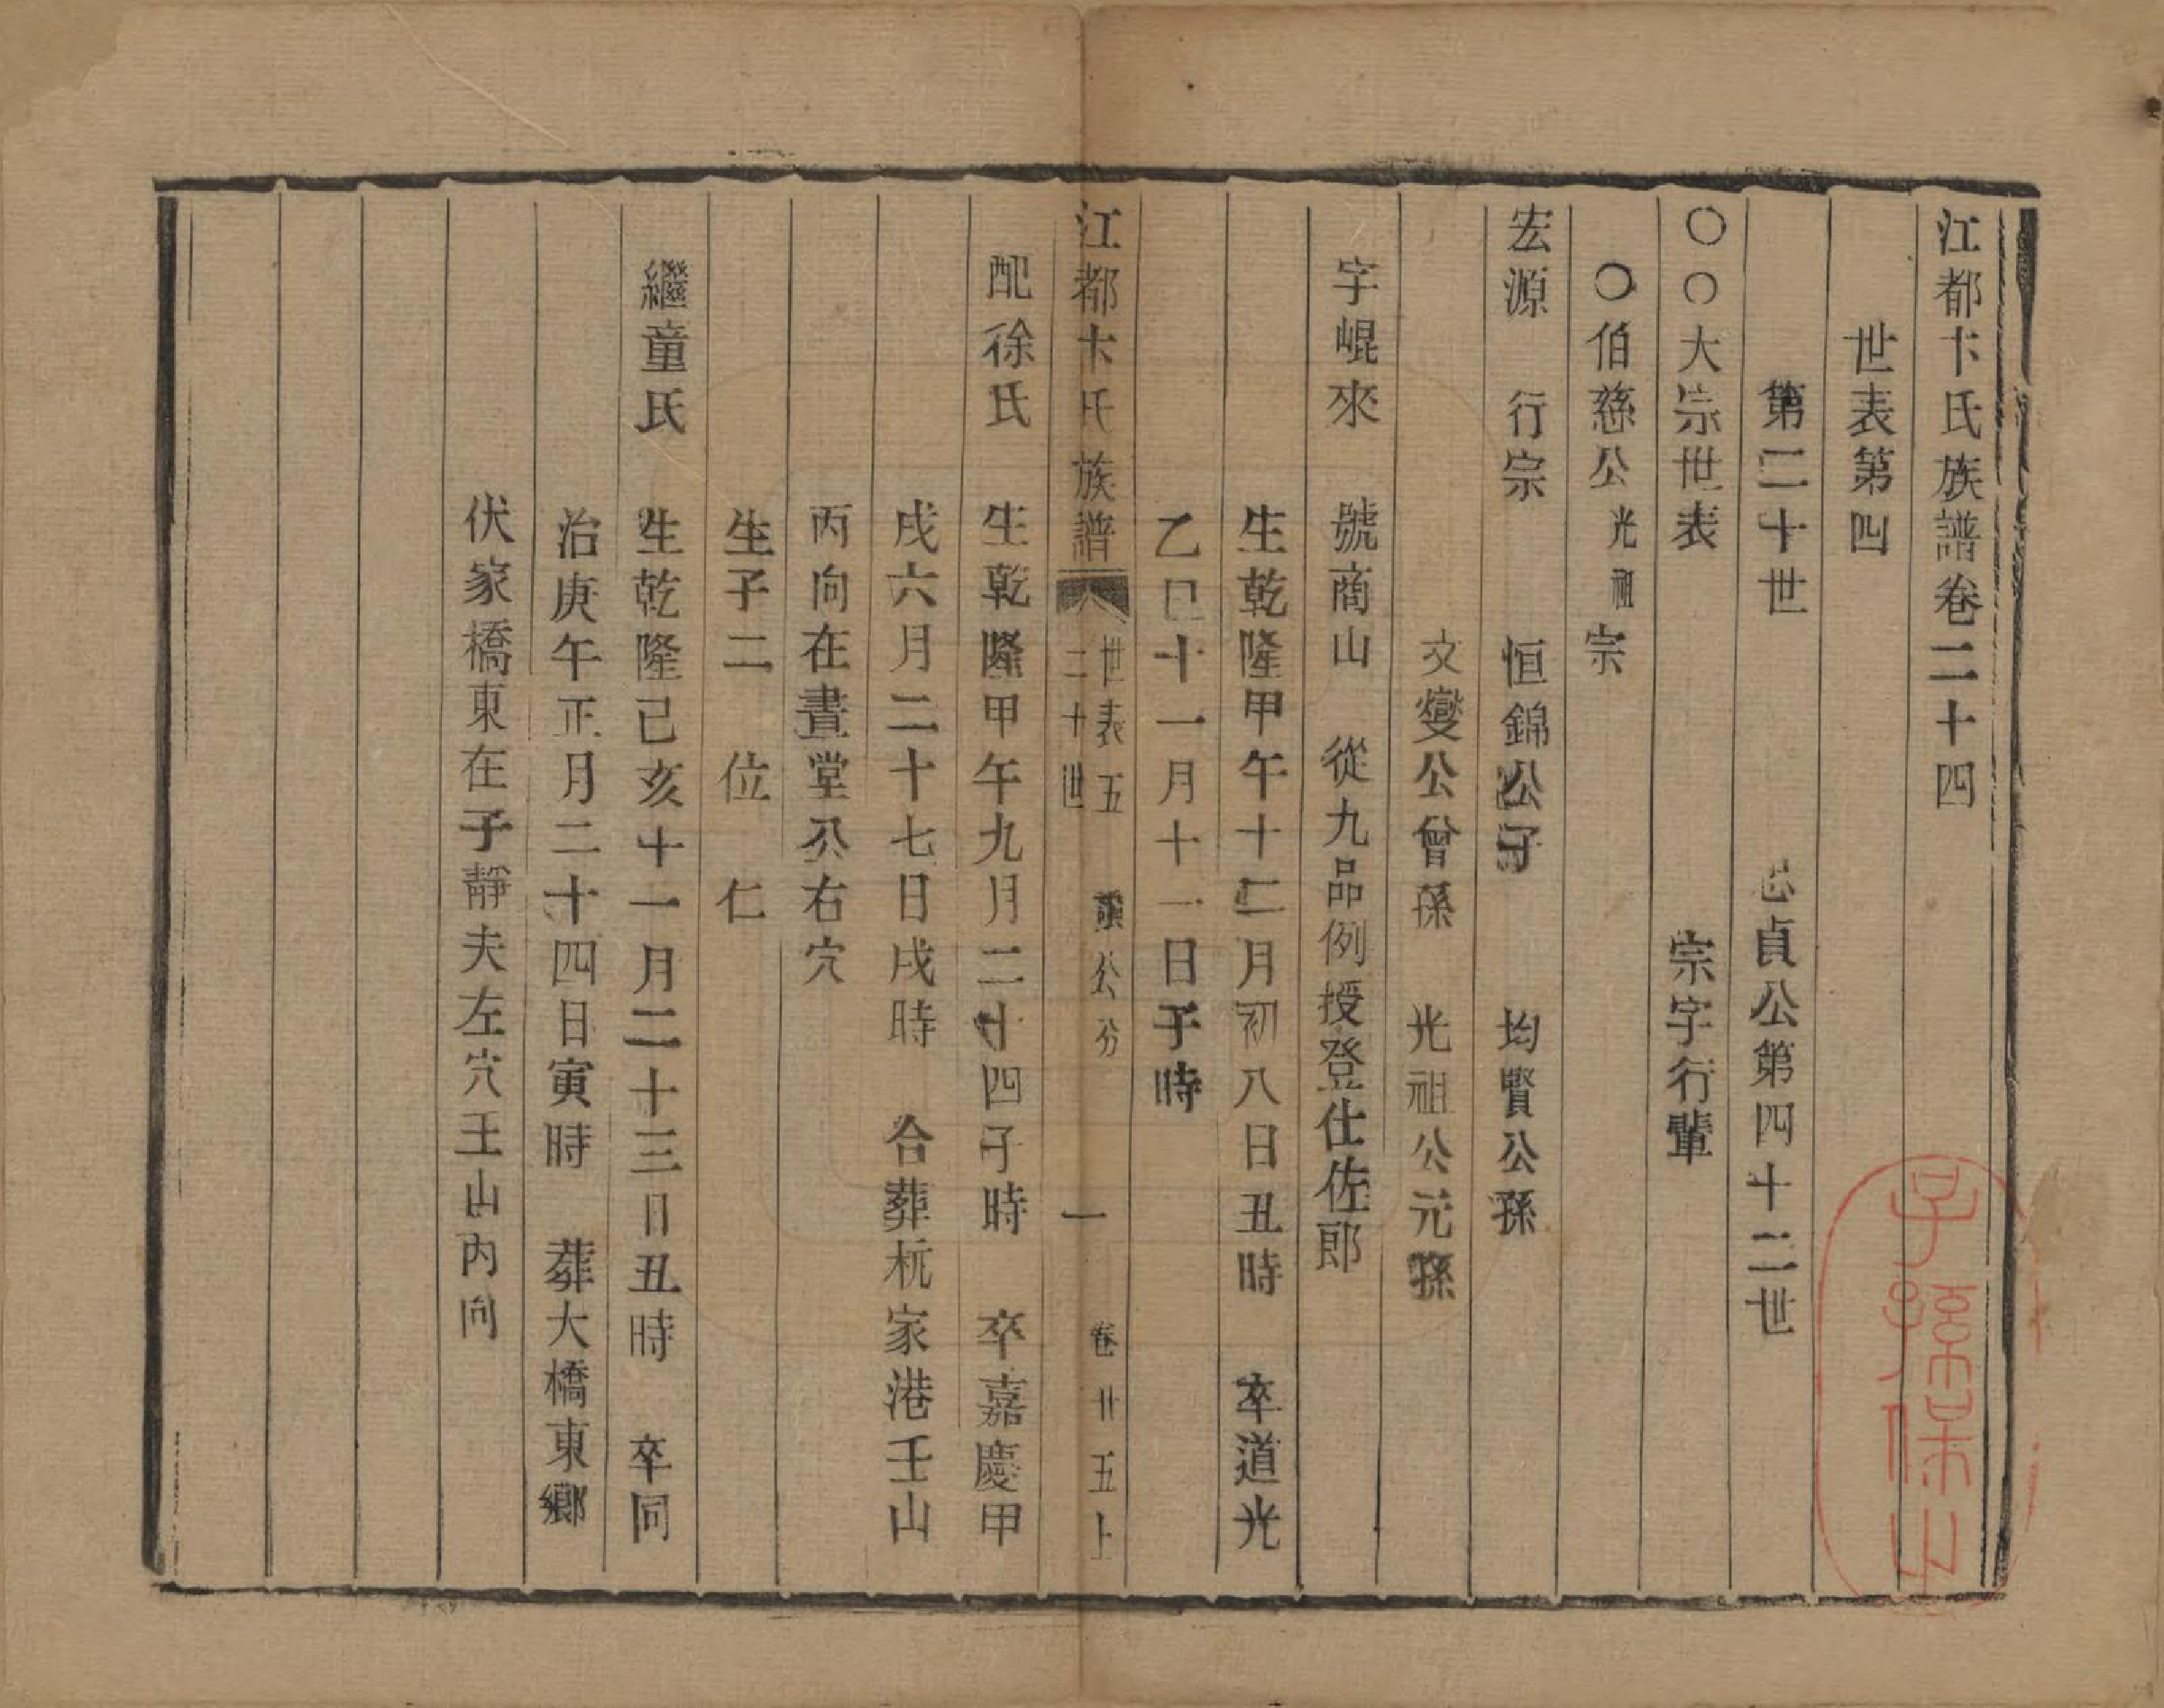 江都卞氏族譜卷二十四
世表第四
第二十世　忠貞公第四十二世
〇〇大宗世表　宗字行輩
〇伯慈公光祖宗
宏源　行宗　恒錦公子　均賢公孫
文燮公曾孫　光祖公元孫
字崐來　號商山　從九品例授登仕佐郎
生乾隆甲午十二月初八日丑時　卒道光
乙巳十一月十一日子時
江都卞氏族譜　世表五　二十世　公分　一　卷廿五上
配徐氏　生乾隆甲午九月二十四子時　卒嘉慶甲
戌六月二十七日戌時　合葬杭家港壬山
丙向在晝堂公右穴
生子二　位　仁
繼童氏　生乾隆己亥十一月二十三日丑時　卒同
治庚午正月二十四日寅時　葬大橋東鄉
伏家橋東在子靜夫左穴壬山丙向
子孫保之